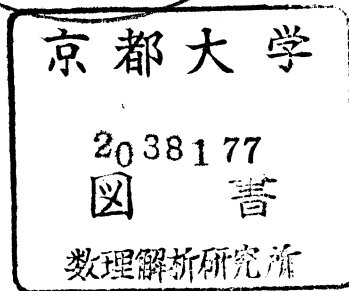 京都大学
2038177
図書
数理解析研究所